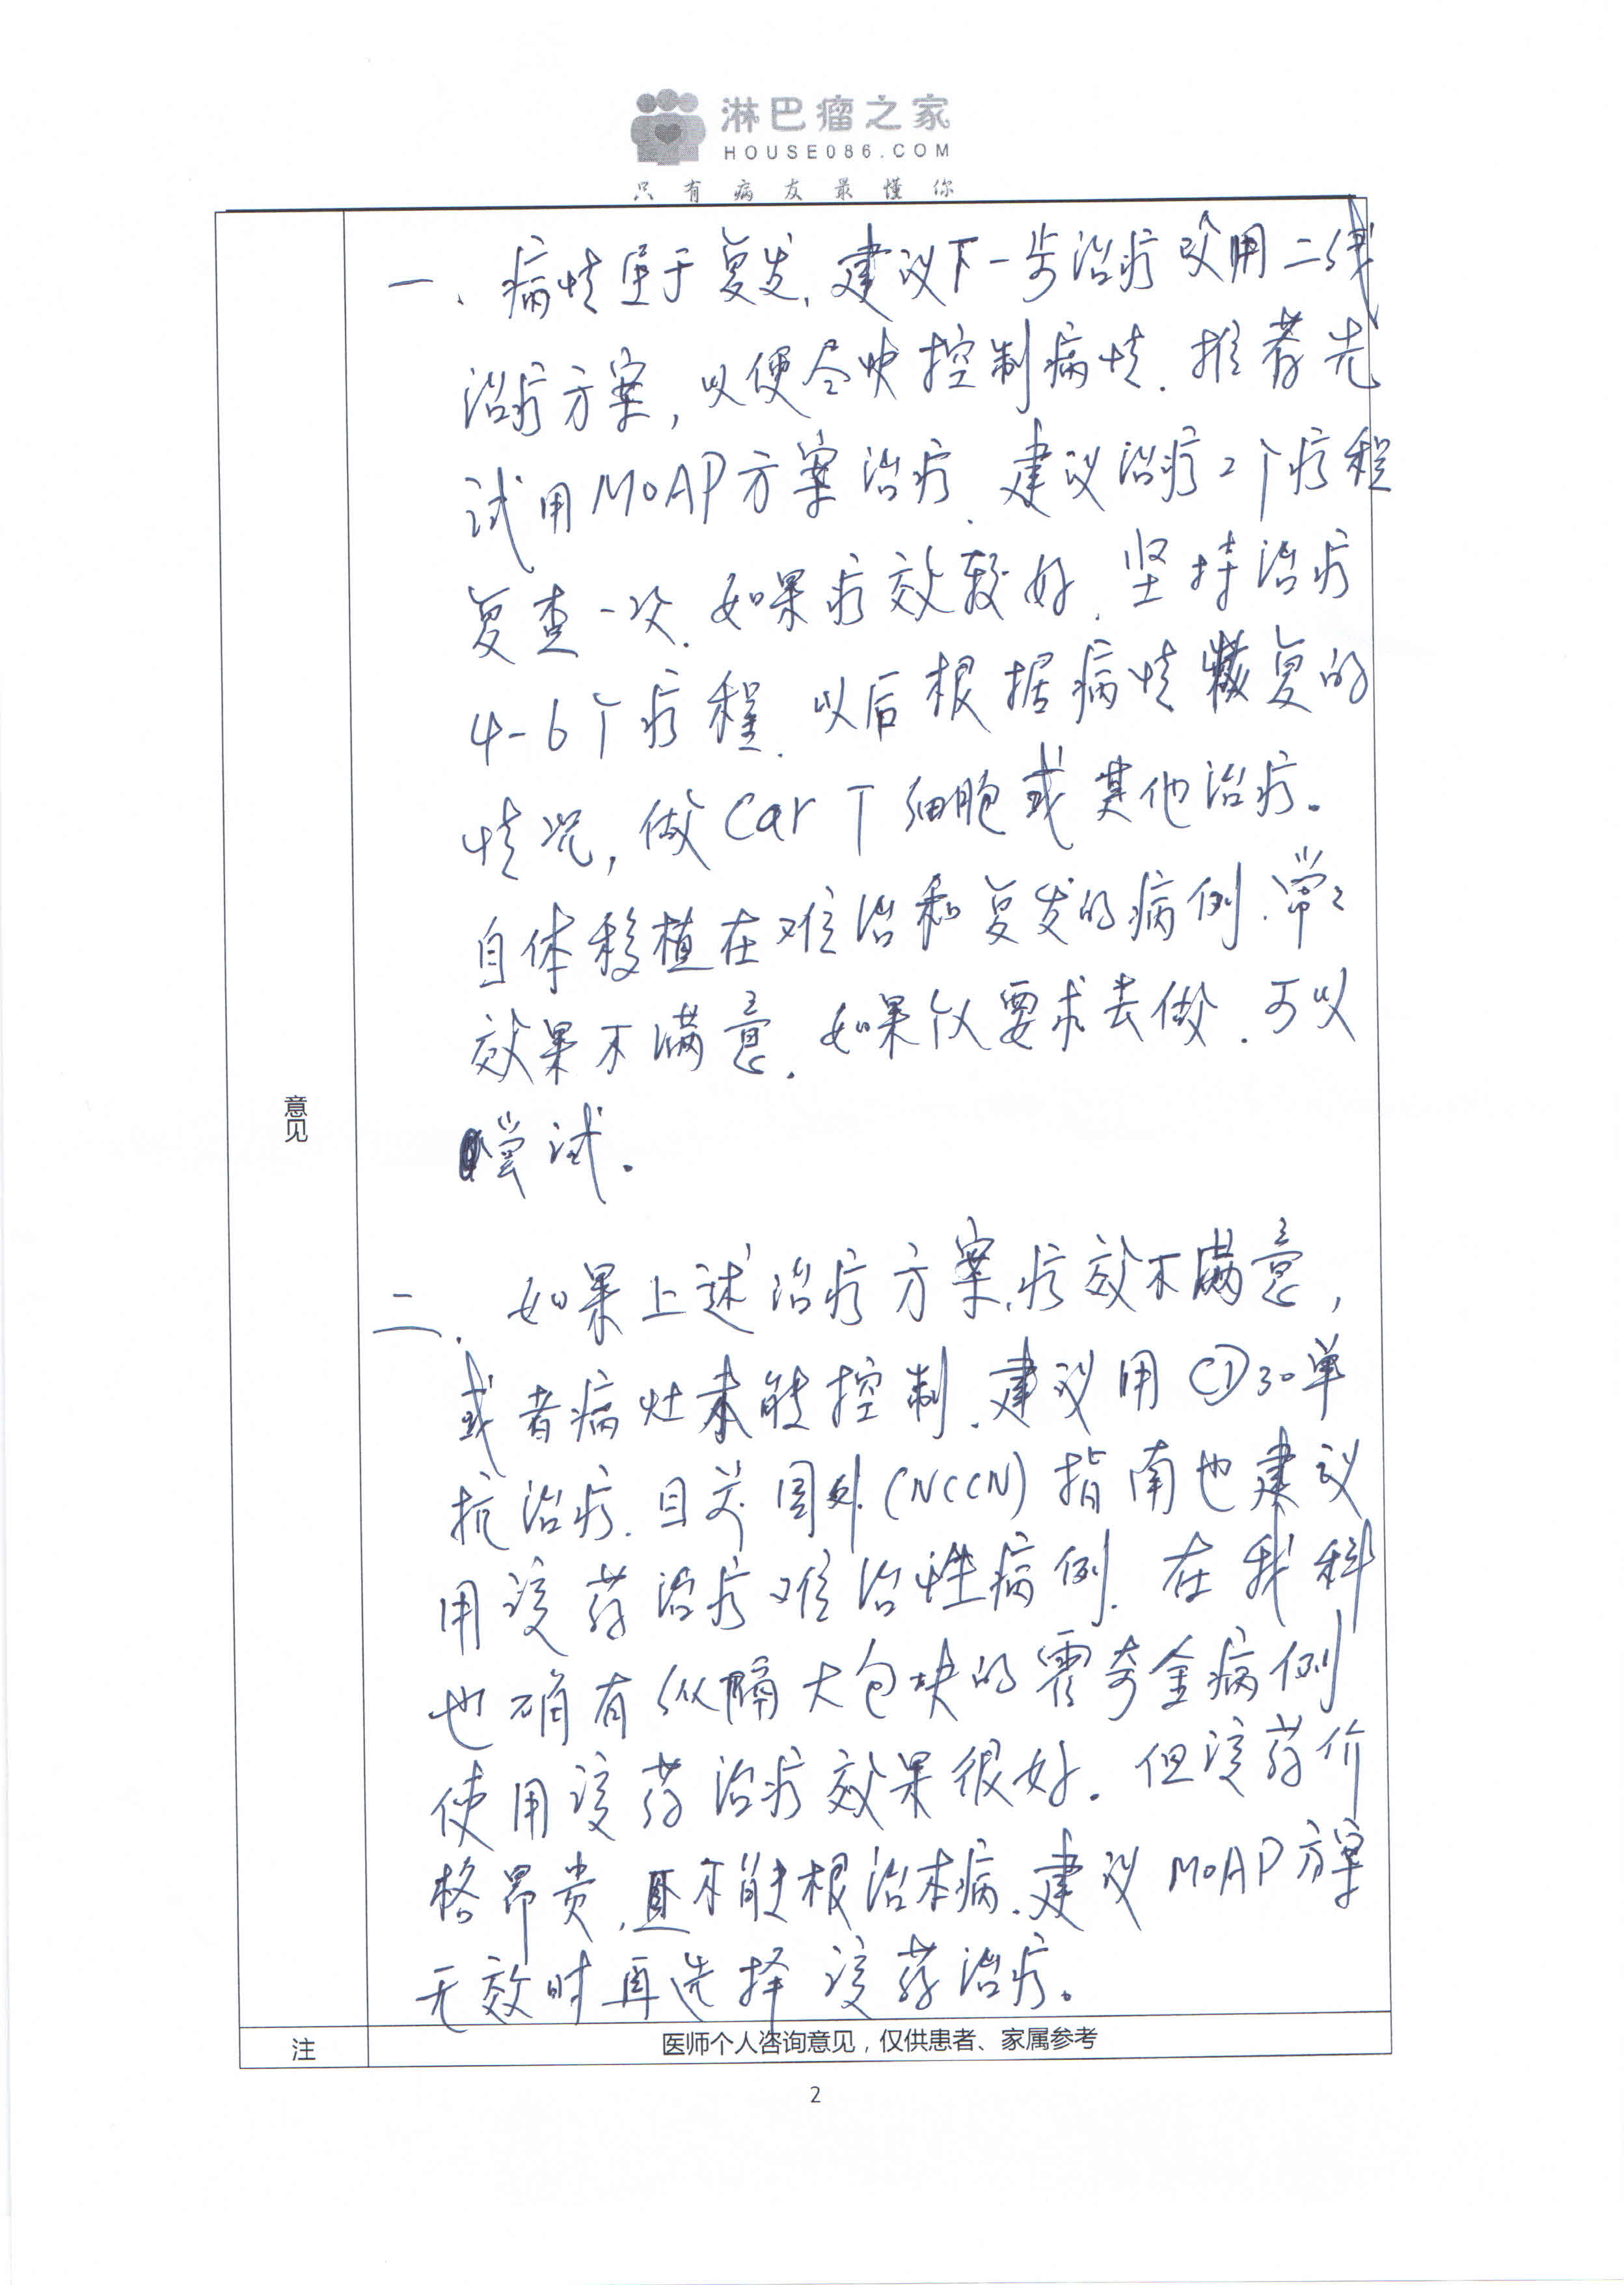 淋巴瘤之家
HOUSE086.COM
只有病友最懂你
一、病情至于复发,建议下一步治疗改用二线
治疗方案,以便尽快控制病情.推荐先
试用MoAP方案治疗.建议治疗2个疗程
复查一次.如果疗效较好.坚持治疗
4-6个疗程.以后根据病情恢复的
情况,做Car T细胞或其他治疗。
自体移植在难治和复发的病例.常々
效果不满意.如果仅要求去做.可以
尝试.
意见
二.如果上述治疗方案,疗效不满意,
或者病灶未能控制.建议用CD30单
抗治疗.目前国外(NCCN)指南也建议
用该药治疗难治性病例.在我科
也确有纵膈大包块的霍奇金病例
使用该药治疗效果很好.但该药价
格昂贵,且不能根治本病.建议MoAP方案
无效时再选择该药治疗。
注
医师个人咨询意见，仅供患者、家属参考
2